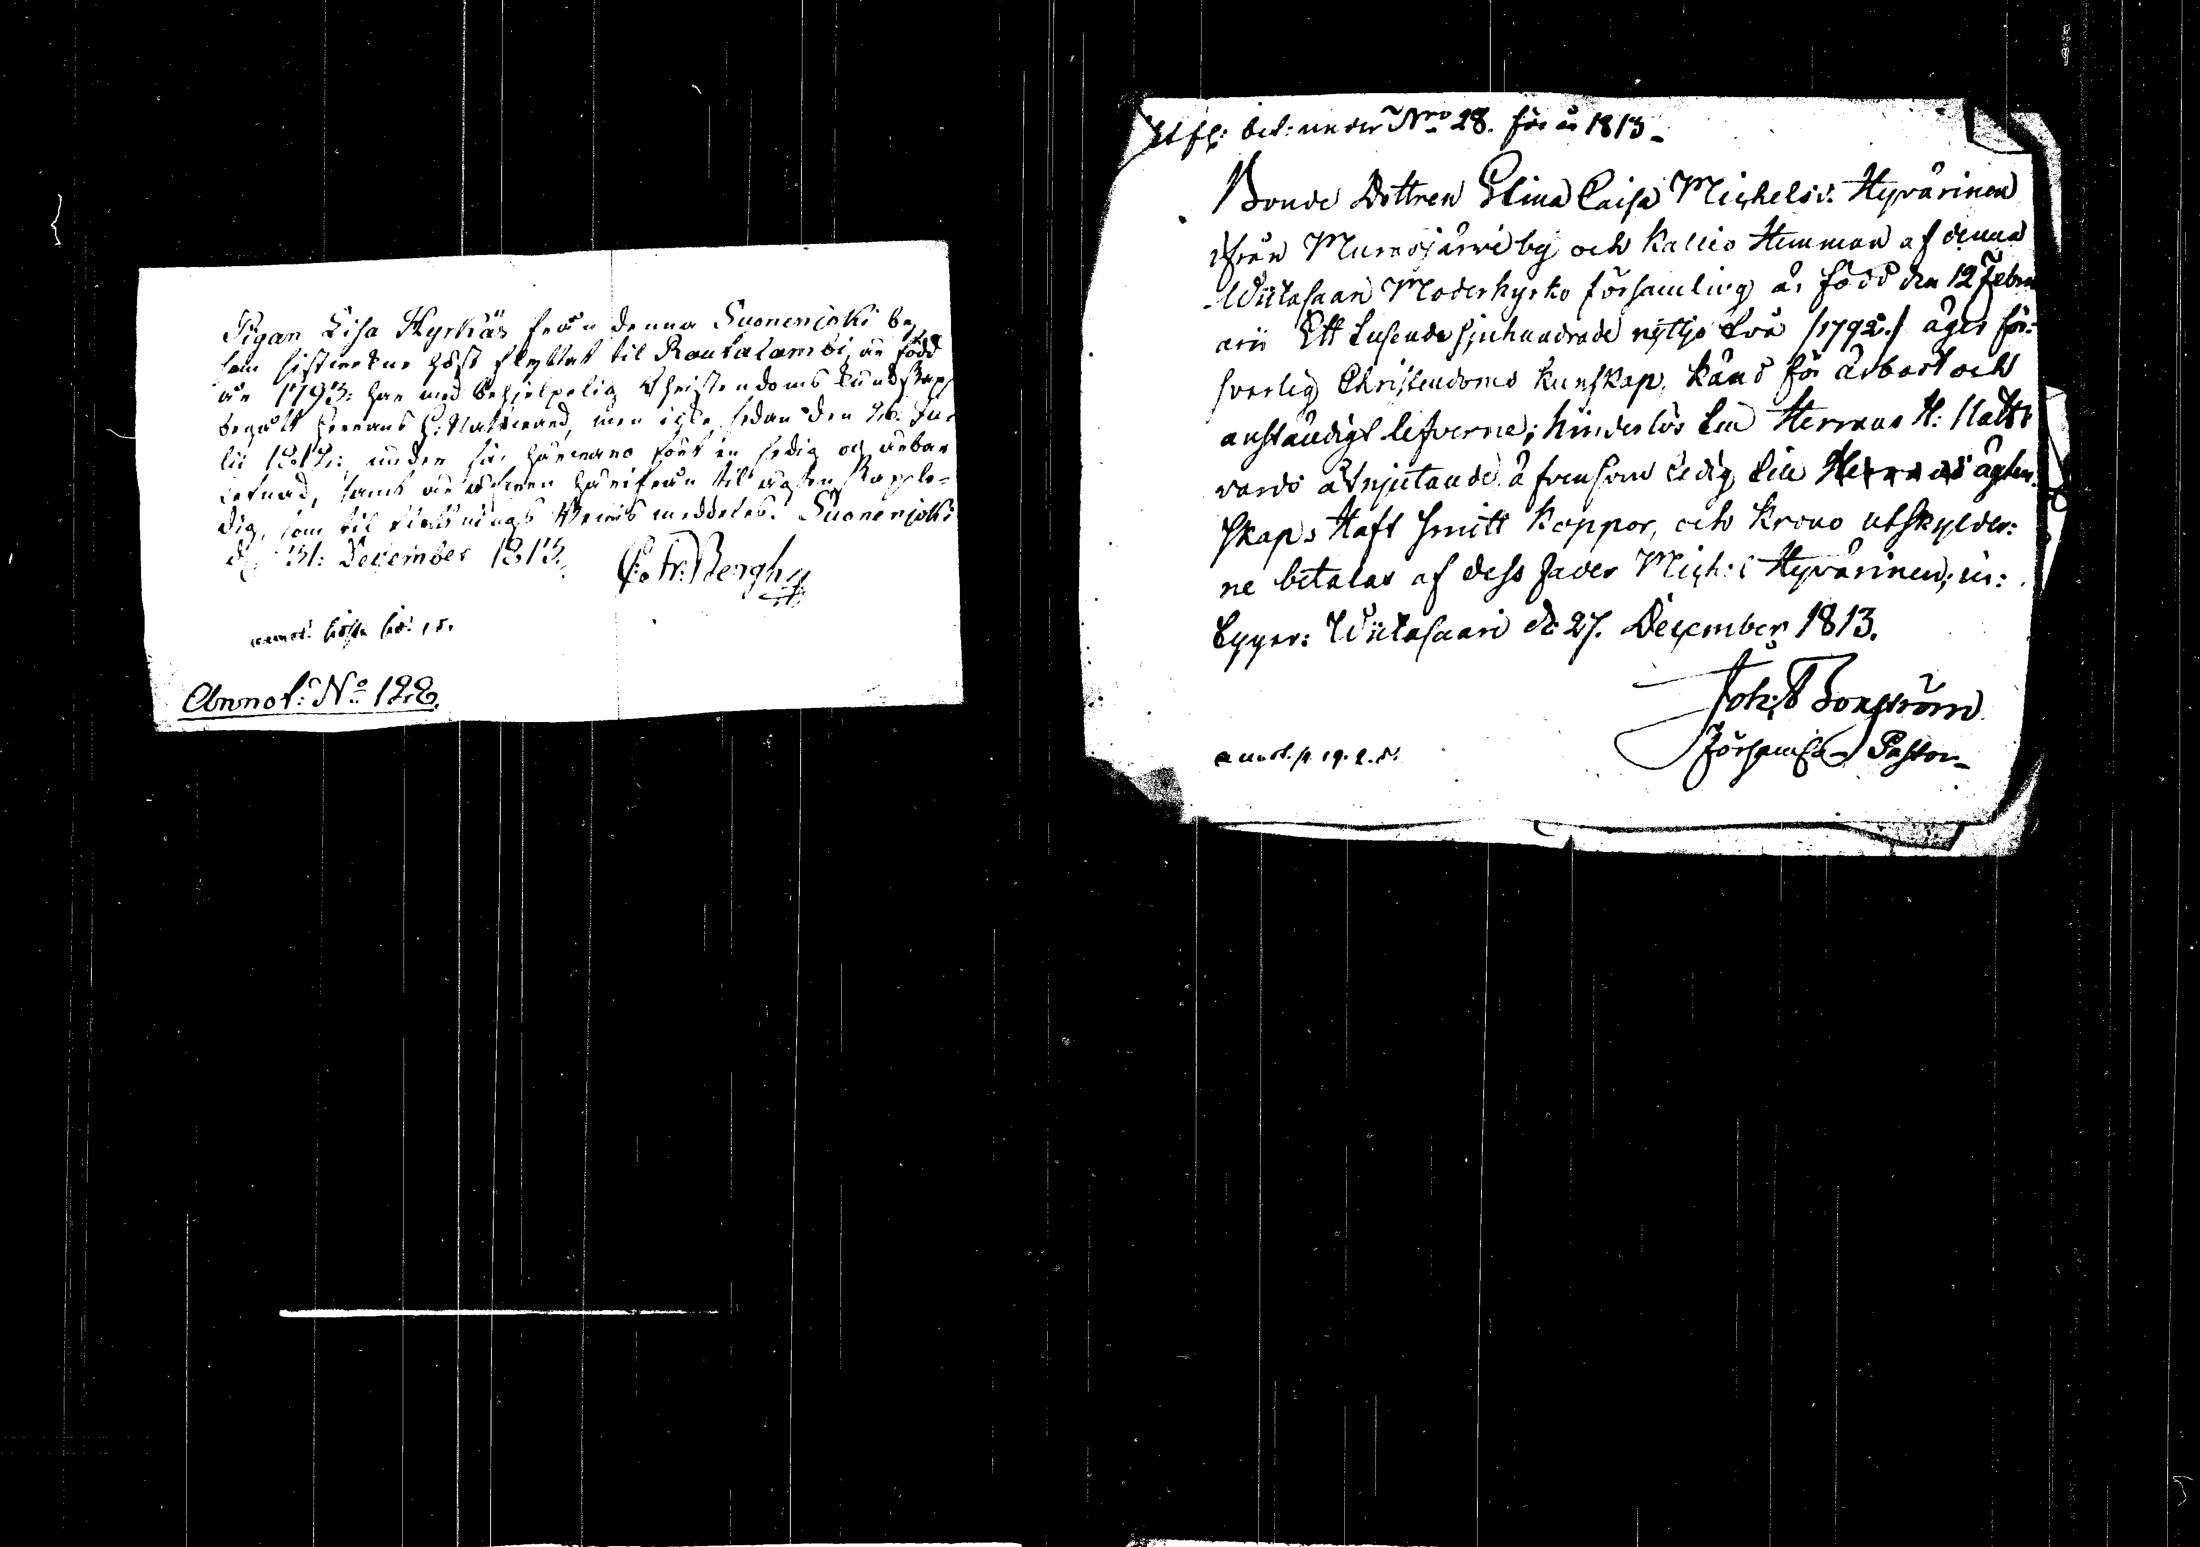 Pigan Lisa Hyrkäs från denna Suonenjoki by
som sistledne höst flyttat til Rautalambi, är född
år 1793: har med behjelpelig Christendoms kundskap
begått Herrans H: Nattward, men icke sedan den 26. Ju-
lii 1812: under sin härwaro fört en sedig og ärbar
lefnad, samt är härifrån til ägtenskap le-
dig, som til flyttnings Bewis meddelas. Suonenjoki
d. 31: December 1813.
C: Fr: Bergh
Annot: No 122.
Utfl: bet: under Nro 28. för år 1813-
Bonde Dottren Stina Caisa Michelsd: Hyvärinen
ifrån Muurasjärvi by och Kallio Hemman af denna
Wiitasaari Moderkyrko församling är född den 12 Febru
arii Ett tusende sjuhundrade nijttjo två /1792./ äger för-
svarlig Christendoms kunskap, känd för ärbart och
anständigt lefverne; hinderlös till Herrans H: Natt
vards åtnjutande äfvensom ledig till ägten-
skap; Haft smitt koppor, och Krono utskylder-
ne betalas af dess fader Mich: Hyvärinen; in-
tygar: Wiitasaari d: 27. December 1813.
Joh: Forsström
Församl: Pastor-
annot. p. 19.